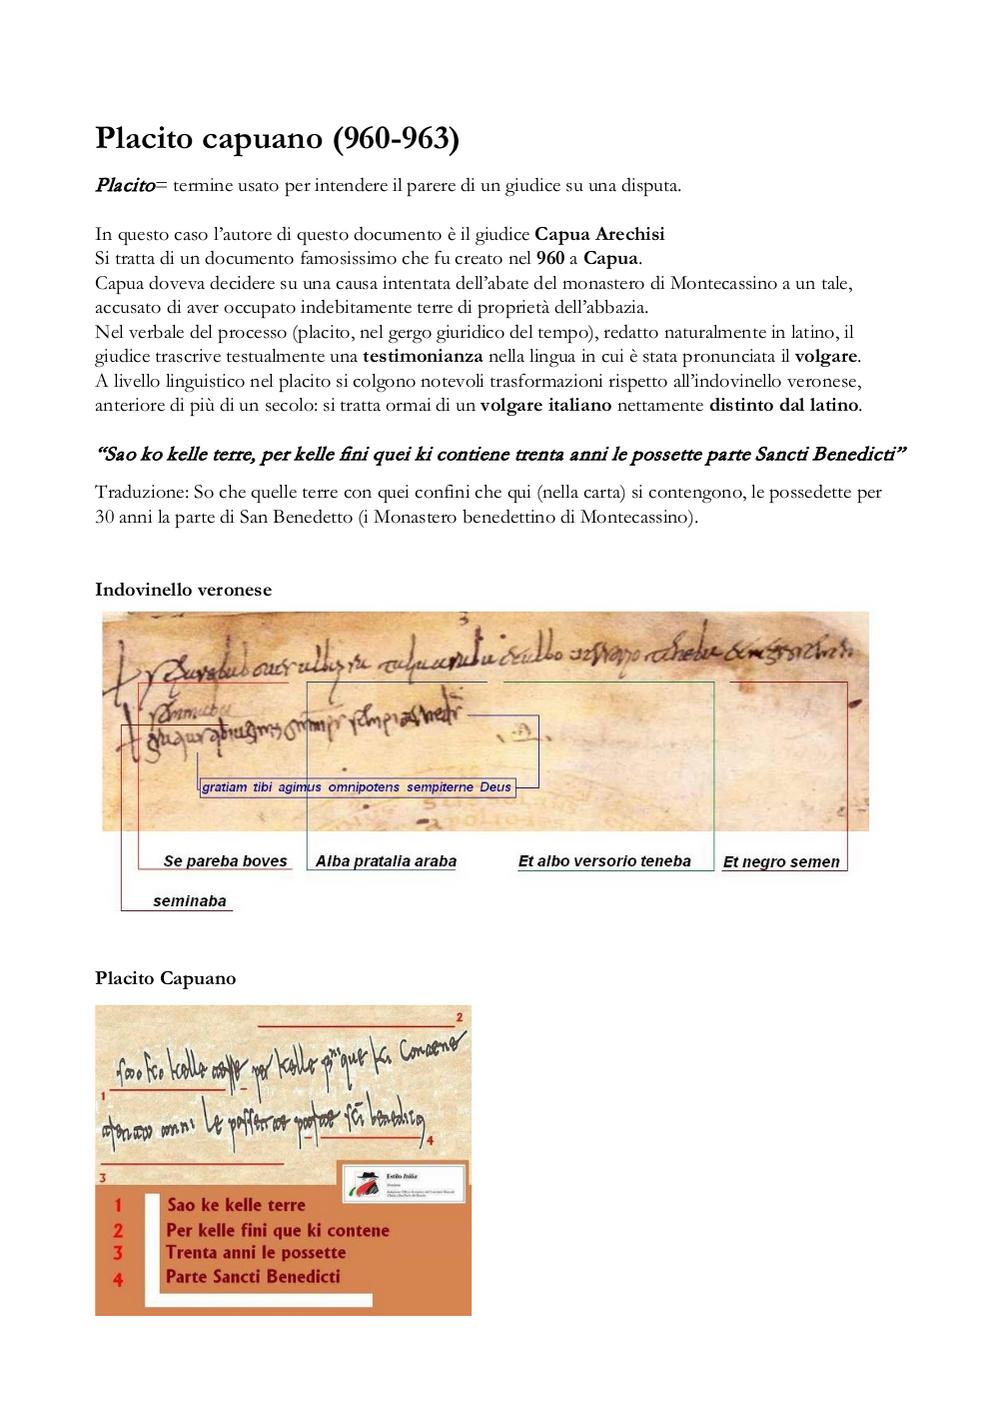 Placito capuano (960-963)
Placito= termine usato per intendere il parere di un giudice su una disputa.
In questo caso l’autore di questo documento è il giudice Capua Arechisi
Si tratta di un documento famosissimo che fu creato nel 960 a Capua.
Capua doveva decidere su una causa intentata dell’abate del monastero di Montecassino a un tale,
accusato di aver occupato indebitamente terre di proprietà dell’abbazia.
Nel verbale del processo (placito, nel gergo giuridico del tempo), redatto naturalmente in latino, il
giudice trascrive testualmente una testimonianza nella lingua in cui è stata pronunciata il volgare.
A livello linguistico nel placito si colgono notevoli trasformazioni rispetto all’indovinello veronese,
anteriore di più di un secolo: si tratta ormai di un volgare italiano nettamente distinto dal latino.
“Sao ko kelle terre, per kelle fini quei ki contiene trenta anni le possette parte Sancti Benedicti”
Traduzione: So che quelle terre con quei confini che qui (nella carta) si contengono, le possedette per
30 anni la parte di San Benedetto (i Monastero benedettino di Montecassino).
Indovinello veronese
gratiam tibi agimus omnipotens sempiterne Deus
Se pareba boves Alba pratalia araba Et albo versorio teneba Et negro semen
seminaba
Placito Capuano
2
1
4
3
1 Sao ke kelle terre
2 Per kelle fini que ki contene
3 Trenta anni le possette
4 Parte Sancti Benedicti